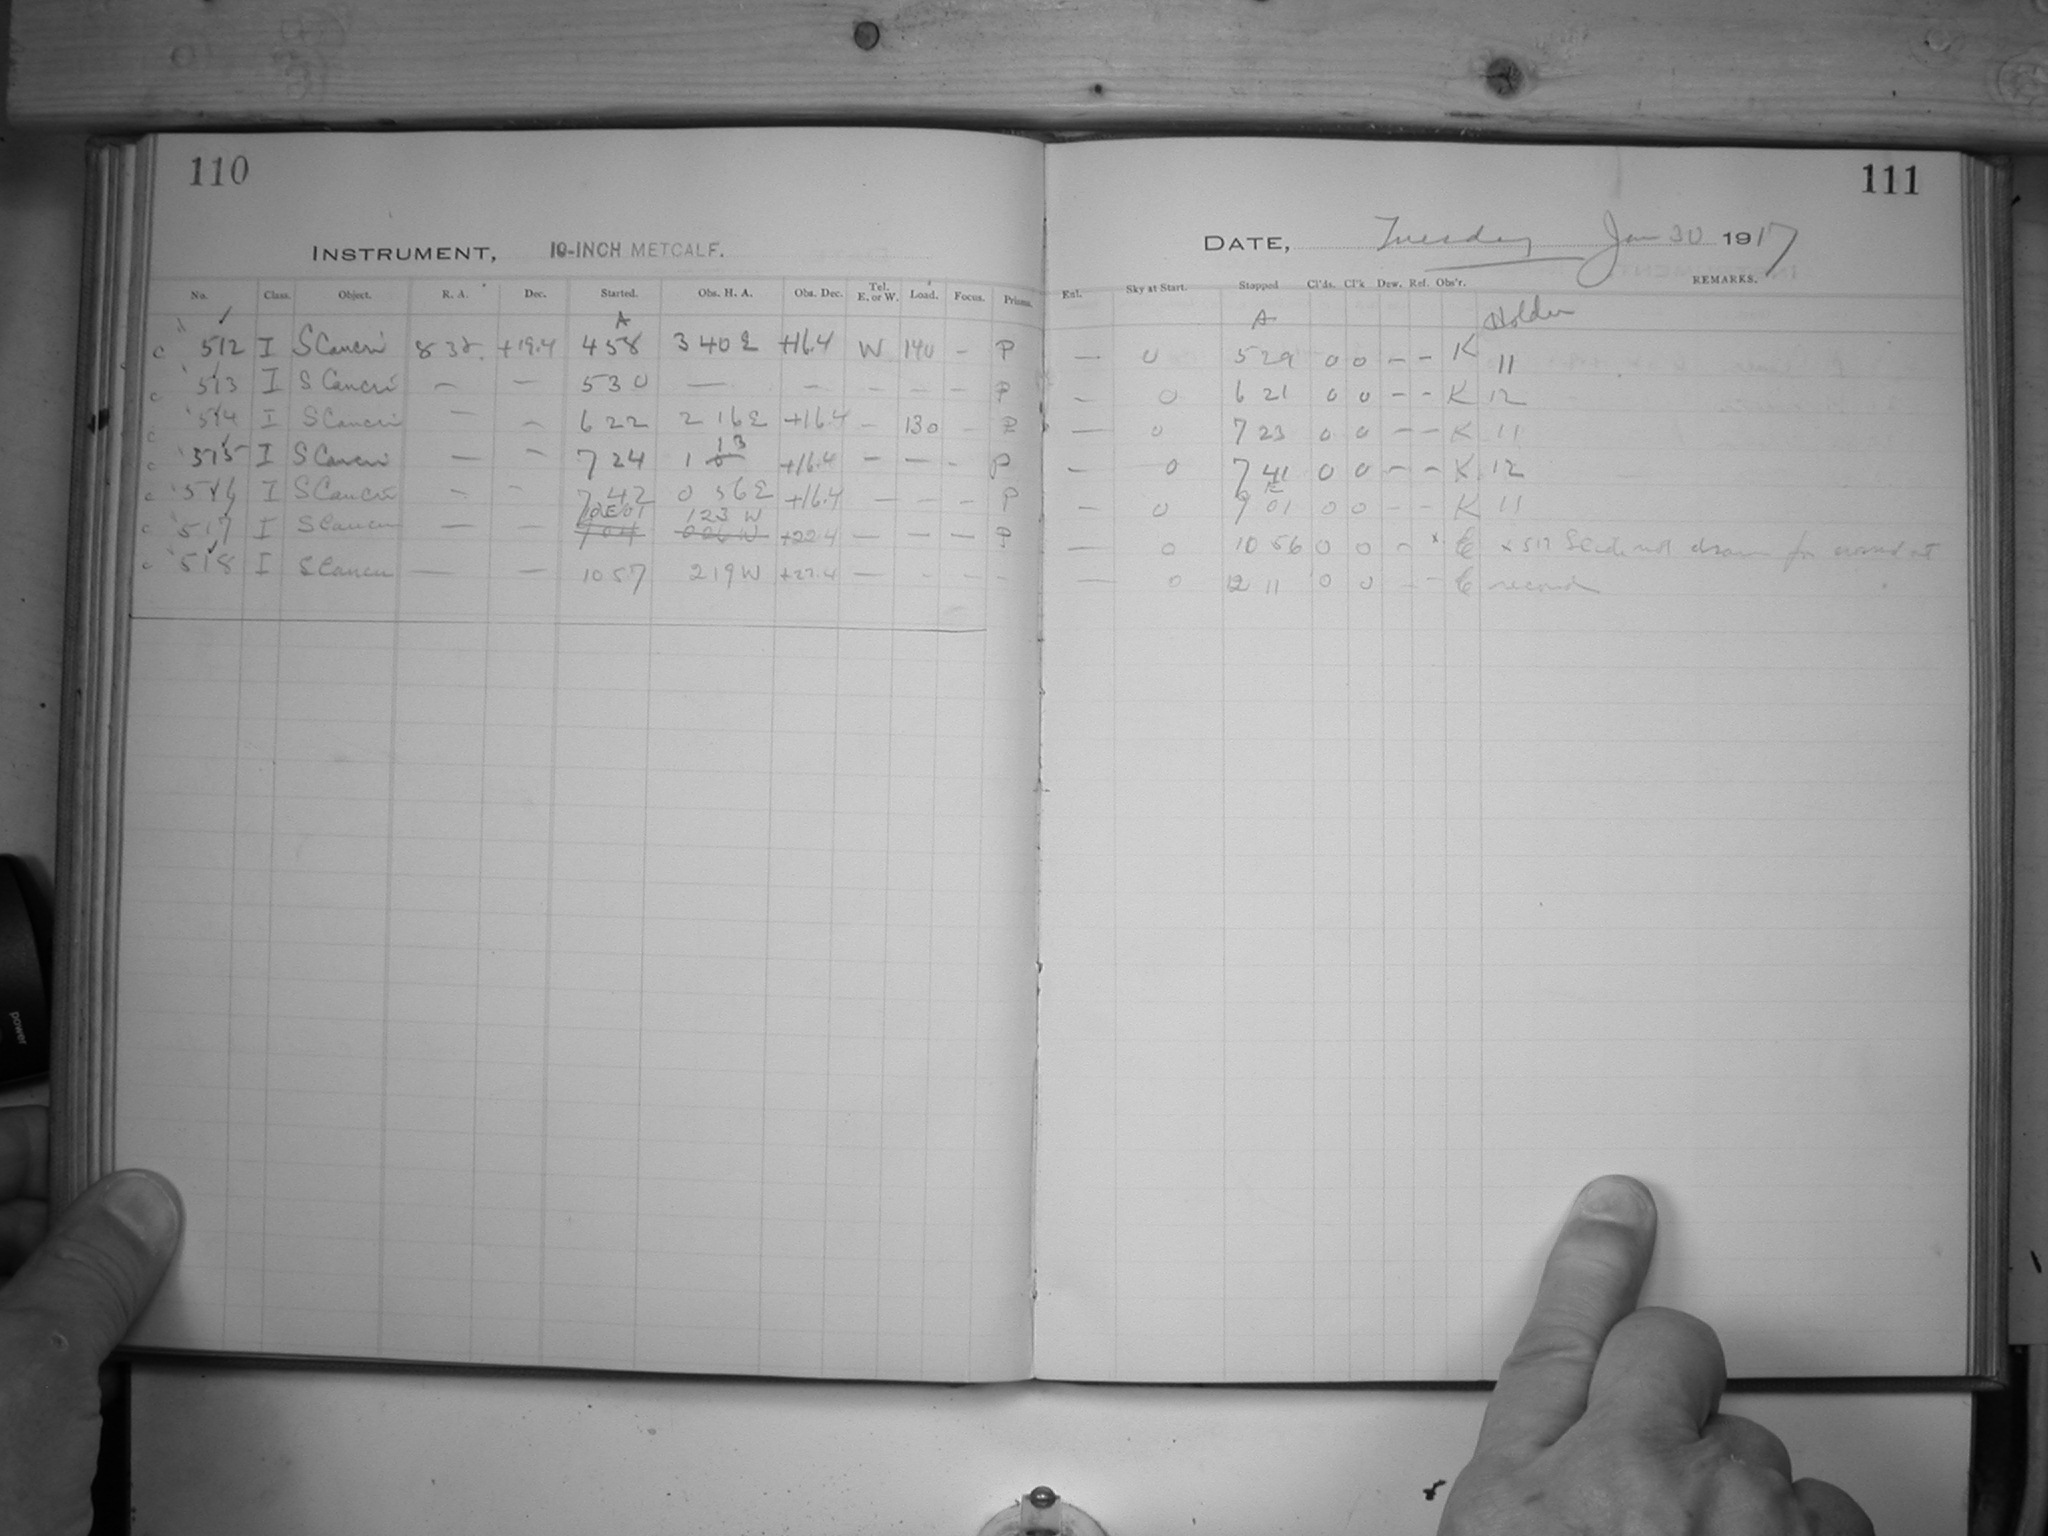 110
INSTRUMENT, 10-INCH METCALF.
No. Class. Object. R. A. Dec. Started. Obs. H. A. Obs. Dec. Tel. E. or W. Load. Focus. Prisms.
A
c 512 I S Cancri 8 38. +19.4 458 3 40 E +16.4 W 140 - P
c 513 I S Cancri — — 530 — - - - - P
c 514 I S Cancri — — 622 2 16 E +16.4 - 130 - P
c 515 I S Cancri — — 724 1 13 +16.4 — — - P
c 516 I S Cancri - - 742 0 56 E +16.4 — - - P
c 517 I S Cancri — — 123 W +22.4 — — — P
c 518 I S Cancri — — 1057 219 W +22.4 — - - -
111
DATE, Tuesday Jan 30 1917
Enl. Sky at Start. Stopped Cl'ds. Cl'k Dew. Ref. Obs'r. REMARKS.
A Holder
— 0 529 0 0 - - K 11
- 0 6 21 0 0 - - K 12
— 0 7 23 0 0 - - K 11
- 0 7 41 0 0 - - K 12
- 0 9 01 0 0 - - K 11
— 0 10 56 0 0 - x E x 517 Slide not drawn for
— 0 12 11 0 0 - - E record
power